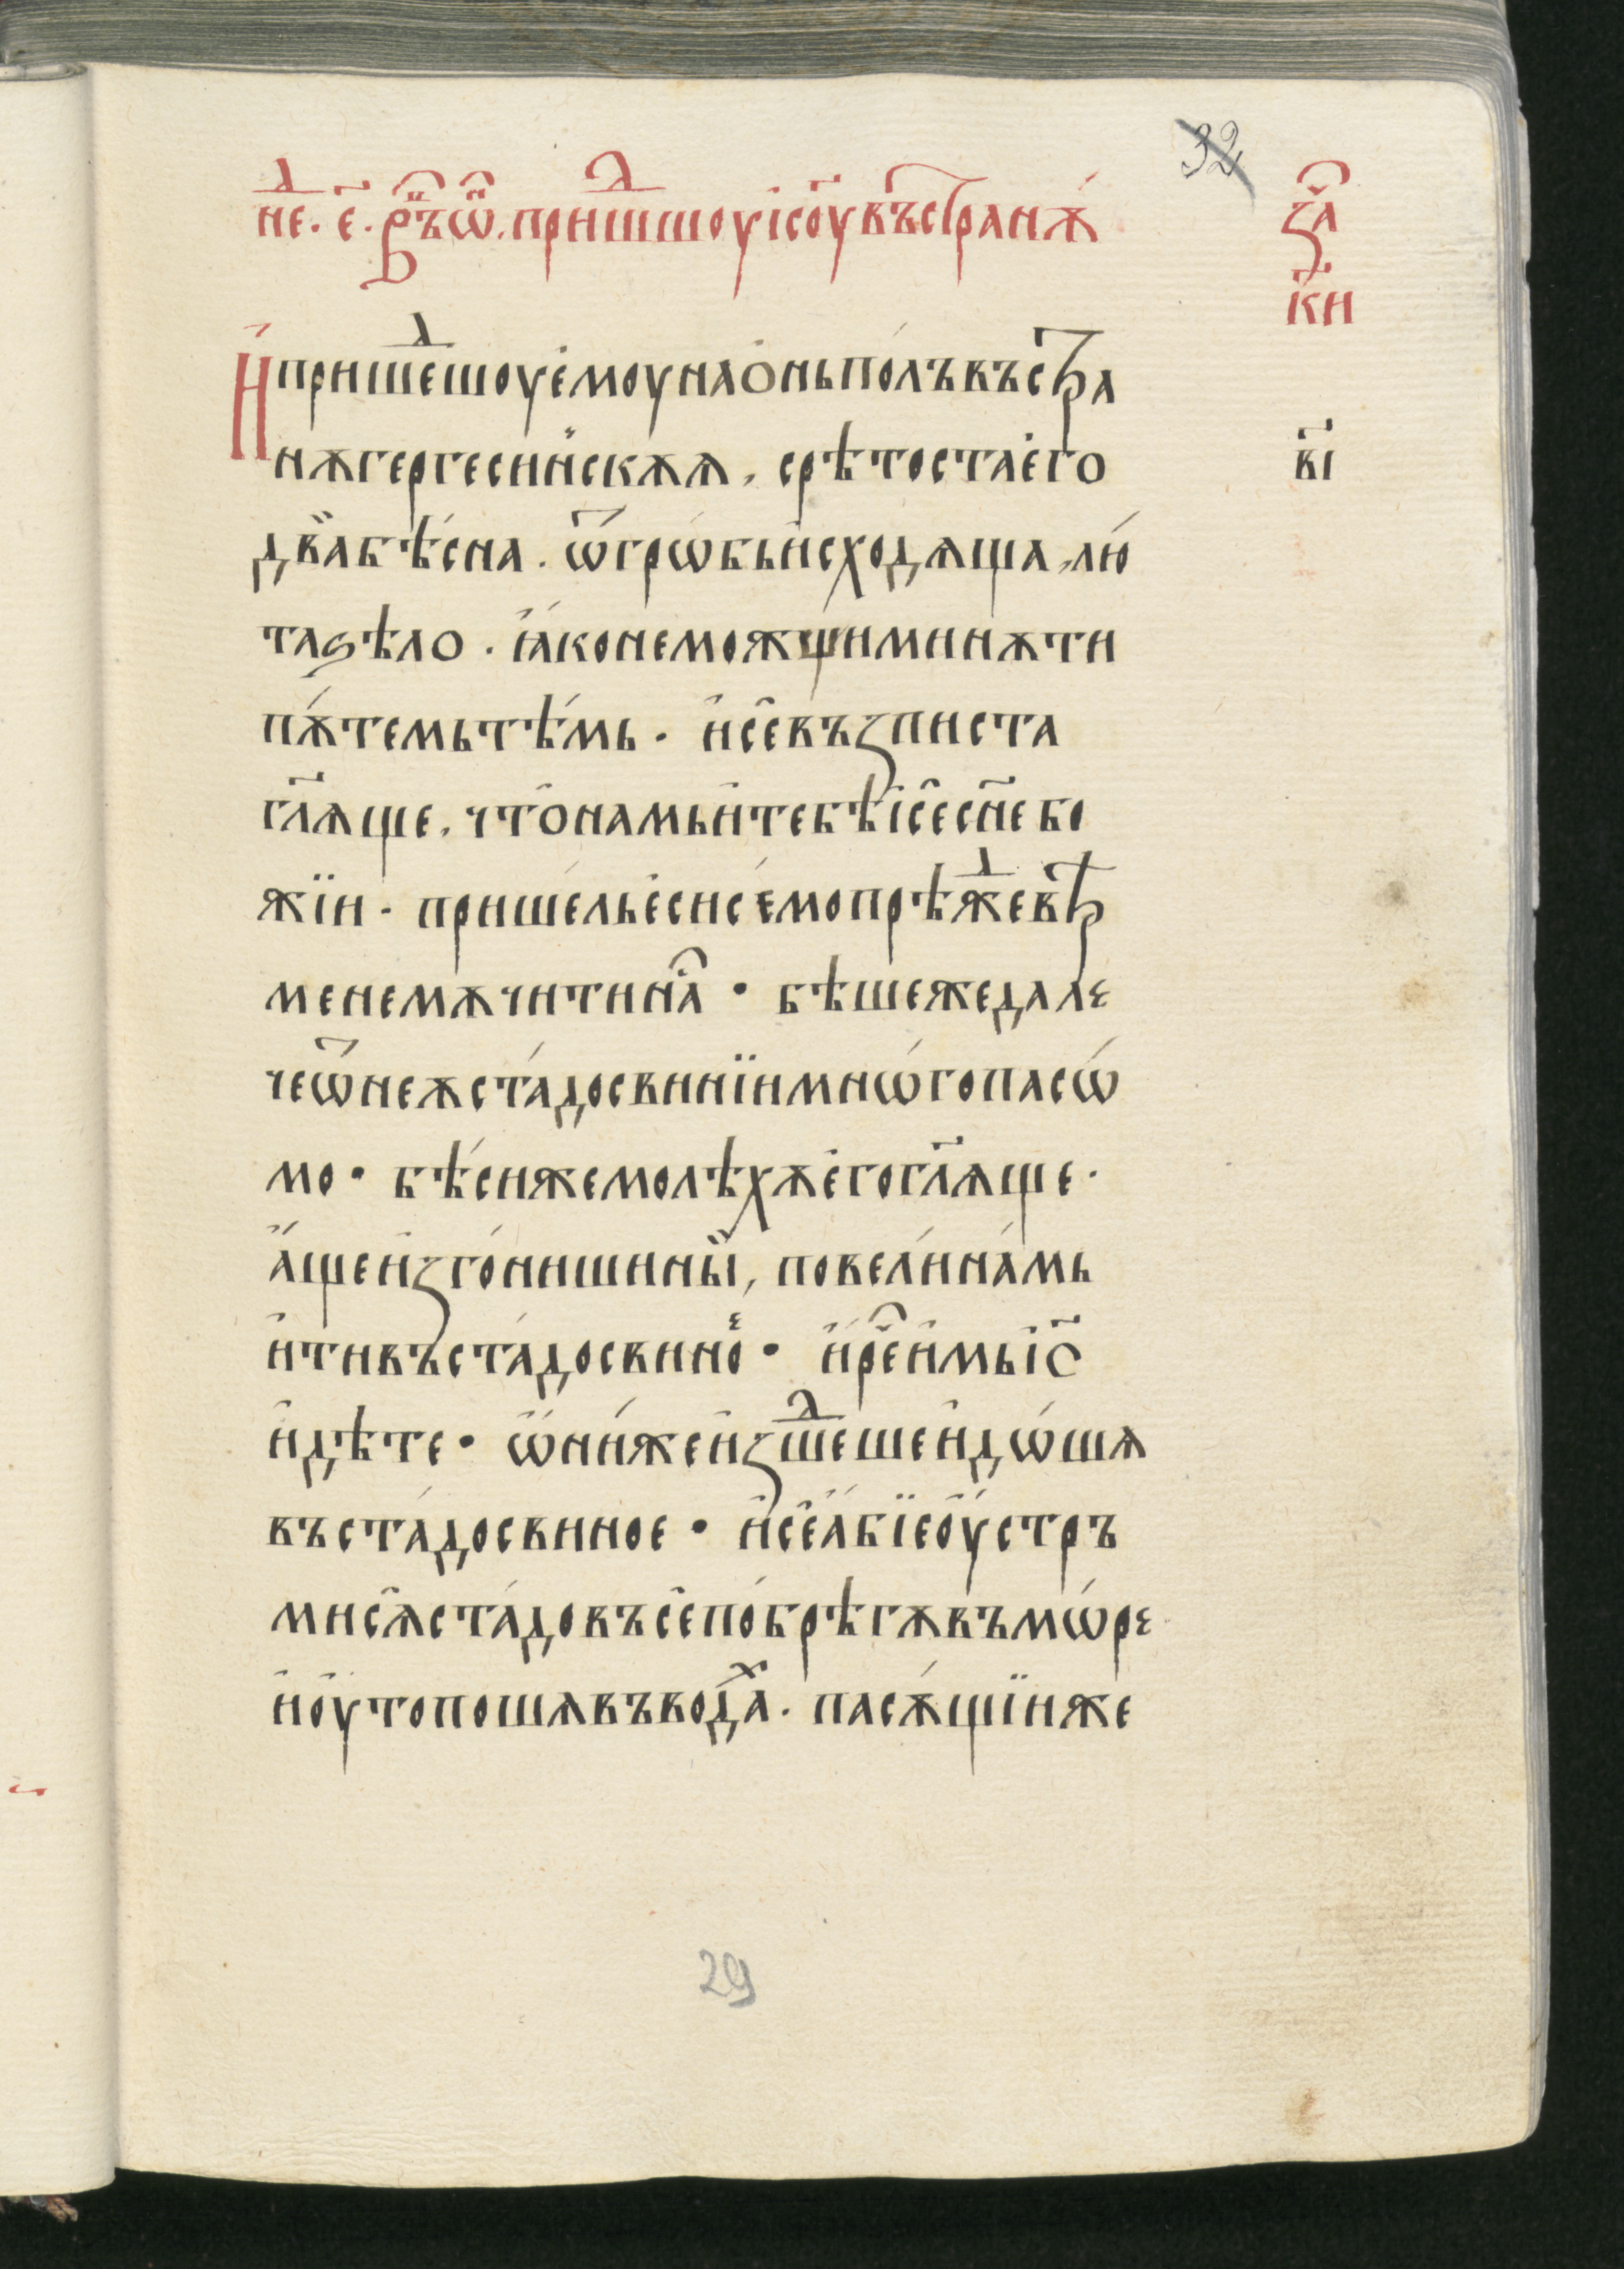 32
не⁣ⷣ. є҃. врѣⷨ ѡ҆ⷩ. пришⷣшоу і҆с҃оу въ странѫ̀
за⁣ⷱ
к҃и
И҆ прише⁣ⷣшоу є҆моу на ѻ҆нь по́лъ въ стра
нѫ гергесин̏скѫѧ, срѣтоста є҆го
в҃і
два̏ бѣ́сна. ѿ грѡ́бь и҆сходѧща, лю́
та ѕѣло. ꙗ҆́ко не мощи минѫти
пѫ́темь тѣ́мь. и҆ се҆ възписта
гл҃ѧще, что̀ намь и҆ тебѣ і҆с҃е сн҃е бо
жїи. прише́ль є҆си сѐмо прѣ⁣ⷤжде врѣ
мене мѫчити на⁣ⷭ • бѣше же дале
че ѿ неѫ ста́до свинїи мнѡ́го пасѡ́
мо • бѣ́си же молѣхѫ є҆го гл҃ѧще.
а҆́ще и҆зго́ниши ны̏, повели́ на́мь
и҆ти въ ста́до свино̏е • и҆ рече⁣ⷱ и҆мь і҆с҃
и҆дѣте • ѡ҆ни́ же и҆зше⁣ⷣше и҆дѡ́шѧ
въ ста́до свиное • и҆ се҆ а҆́бїе оу҆́стръ
ми сѧ̀ ста́до въсѐ по́ брѣгѫ въ мѡ́ре
и҆ оу҆топошѧ въ вода⁣ⷯ. пасѫ́щїи же
29